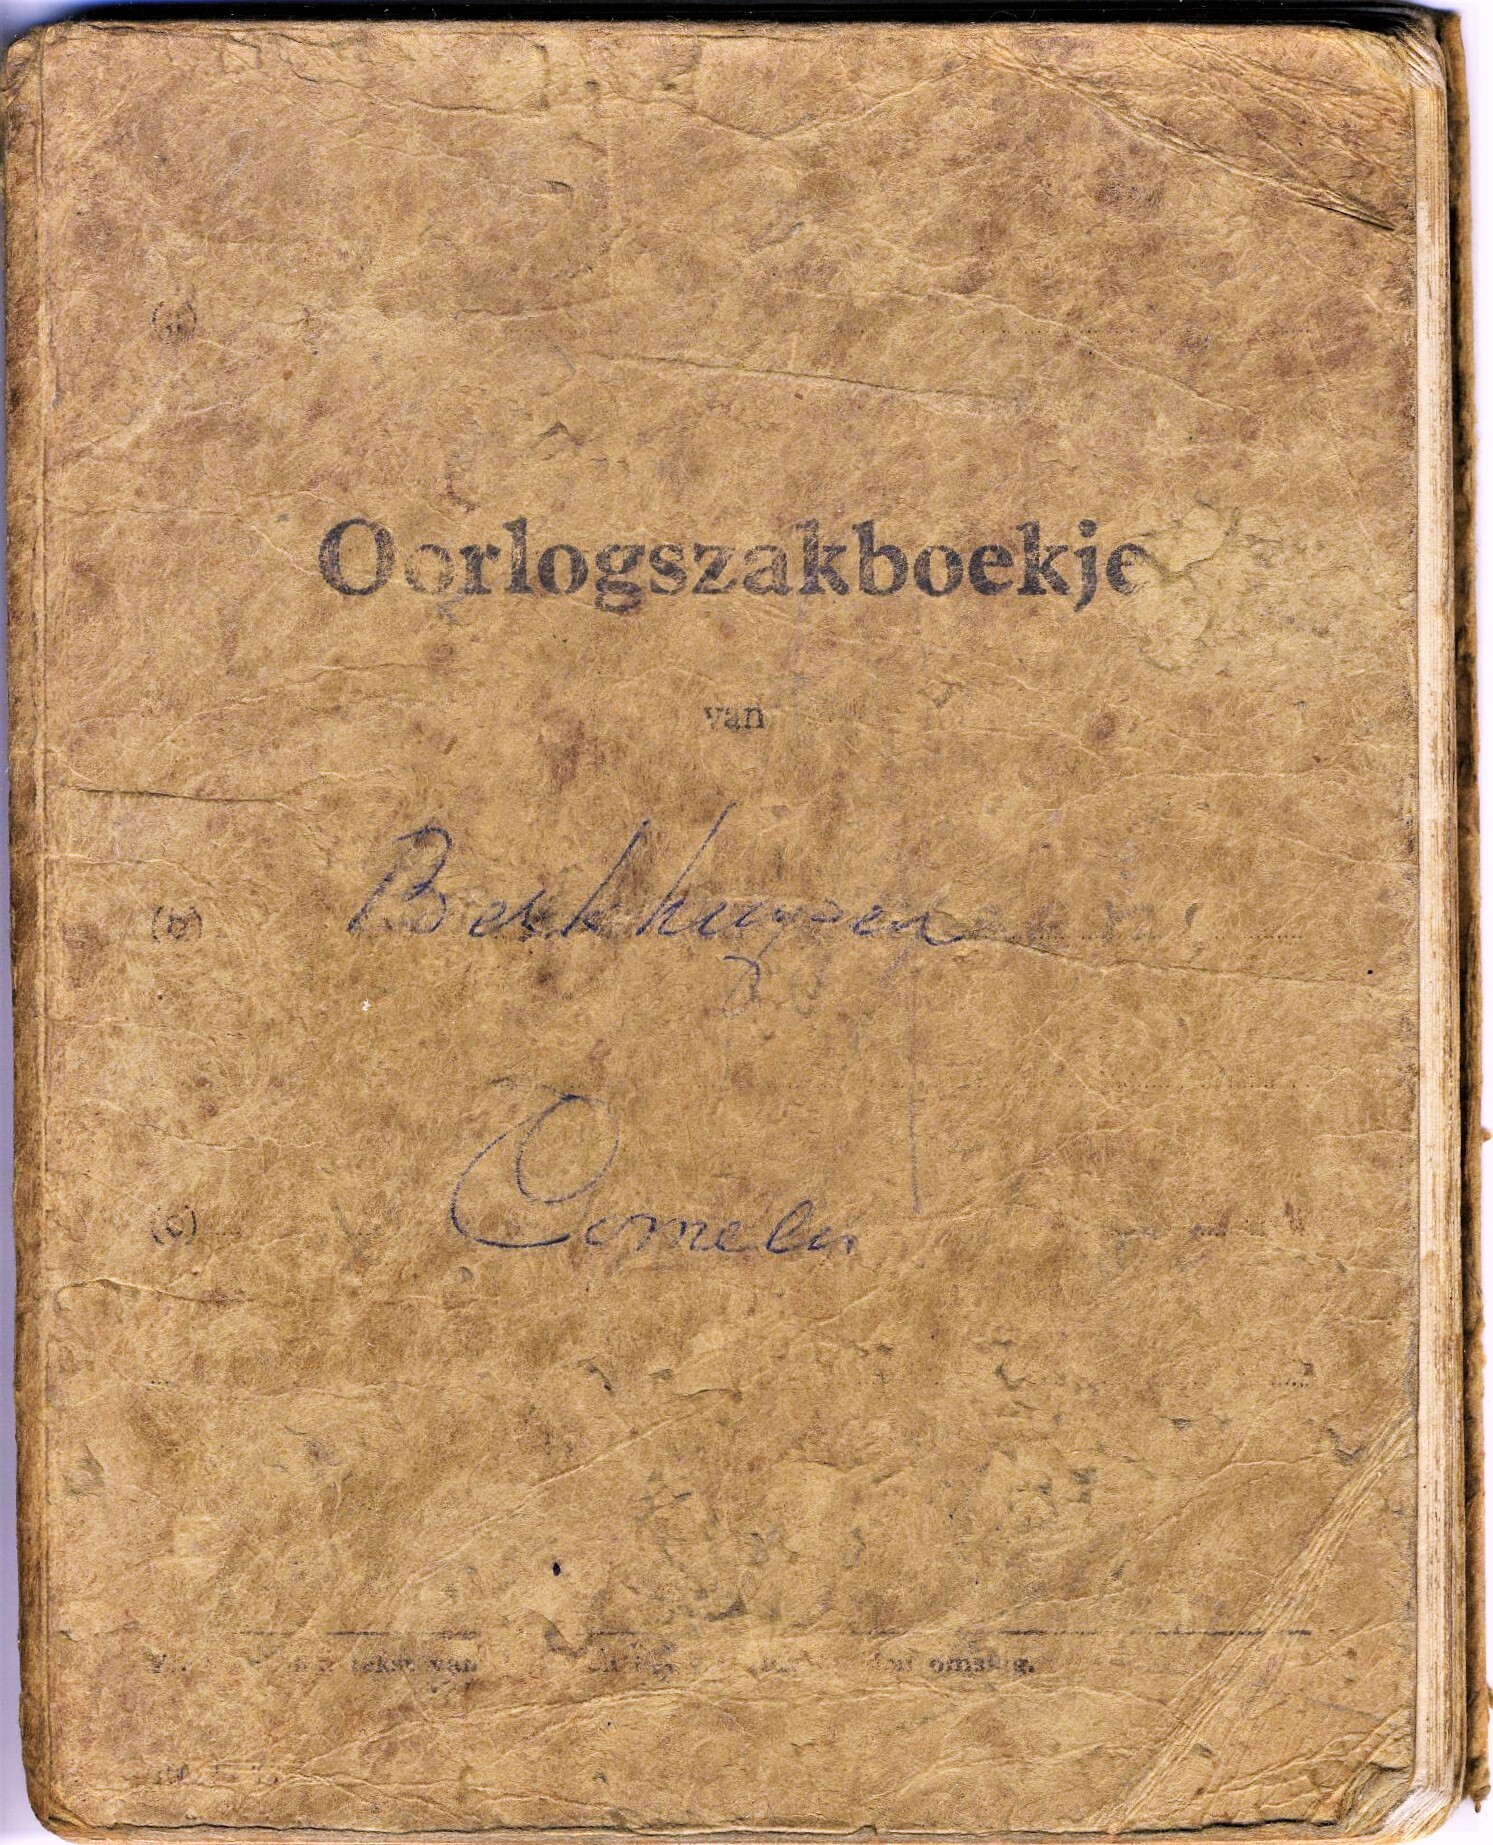 Oorlogszakboekje
van
(b) Berkhuysen
(c) Cornelis
tekst van omslag.